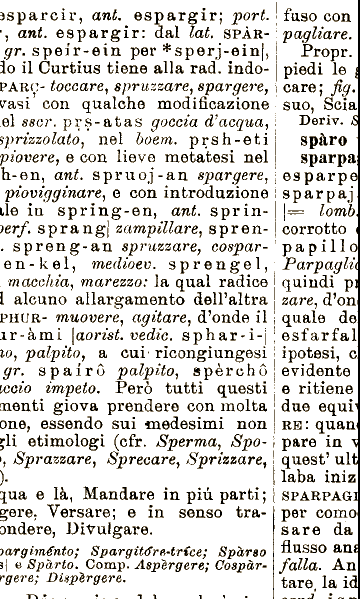 esparcir, ant. espargir; port.
, ant. espargir: dal lat. SPÀR-
gr. speír-ein per *sperj-ein|,
do il Curtius tiene alla rad. indo-
PARÇ- toccare, spruzzare, spargere,
vasi con qualche modificazione
el sscr. pṛṣ-atas goccia d'acqua,
sprizzolato, nel boem. pṛsh-eti
piovere, e con lieve metatesi nel
h-en, ant. spruoj-an spargere,
piovigginare, e con introduzione
ale in spring-en, ant. sprin-
perf. sprang| zampillare, spren-
. spreng-an spruzzare, cospar-
en-kel, medioev. sprengel,
macchia, marezzo: la qual radice
d alcuno allargamento dell'altra
PHUR- muovere, agitare, d'onde il
ur-àmi |aorist. vedic. sphar-î-|
no, palpito, a cui ricongiungesi
gr. spaírô palpito, spèrchô
uccio impeto. Però tutti questi
menti giova prendere con molta
one, essendo sui medesimi non
gli etimologi (cfr. Sperma, Spo-
, Sprazzare, Sprecare, Sprizzare,
).
qua e là, Mandare in piú parti;
gere, Versare; e in senso tra-
ondere, Divulgare.
pargiménto; Spargitóre-tríce; Spàrso
s| e Spàrto. Comp. Aspèrgere; Cospàr-
rgere; Dispèrgere.
fuso con
pagliare.
Propr.
piedi le
care; fig.
suo, Scia
Deriv. S
spàro
sparpa
esparpe
sparpaj
|= lomb.
corrotto
papillo
Parpaglio
quindi p
zare, d'on
quale de
esfarfal
ipotesi, c
evidente
e ritiene
due equi
RE: quan
pare in v
quest' ult
laba iniz
SPARPAGI
per como
sare da
flusso ans
falla. An
tare, la id